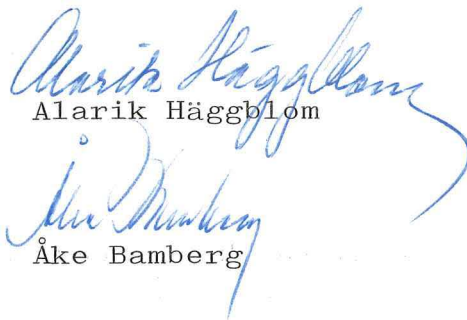 Alarik Häggblom
Alarik Häggblom
Åke Bamberg
Åke Bamberg